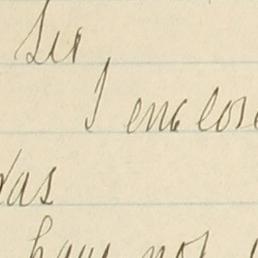 Sir
I enclose
was
have not